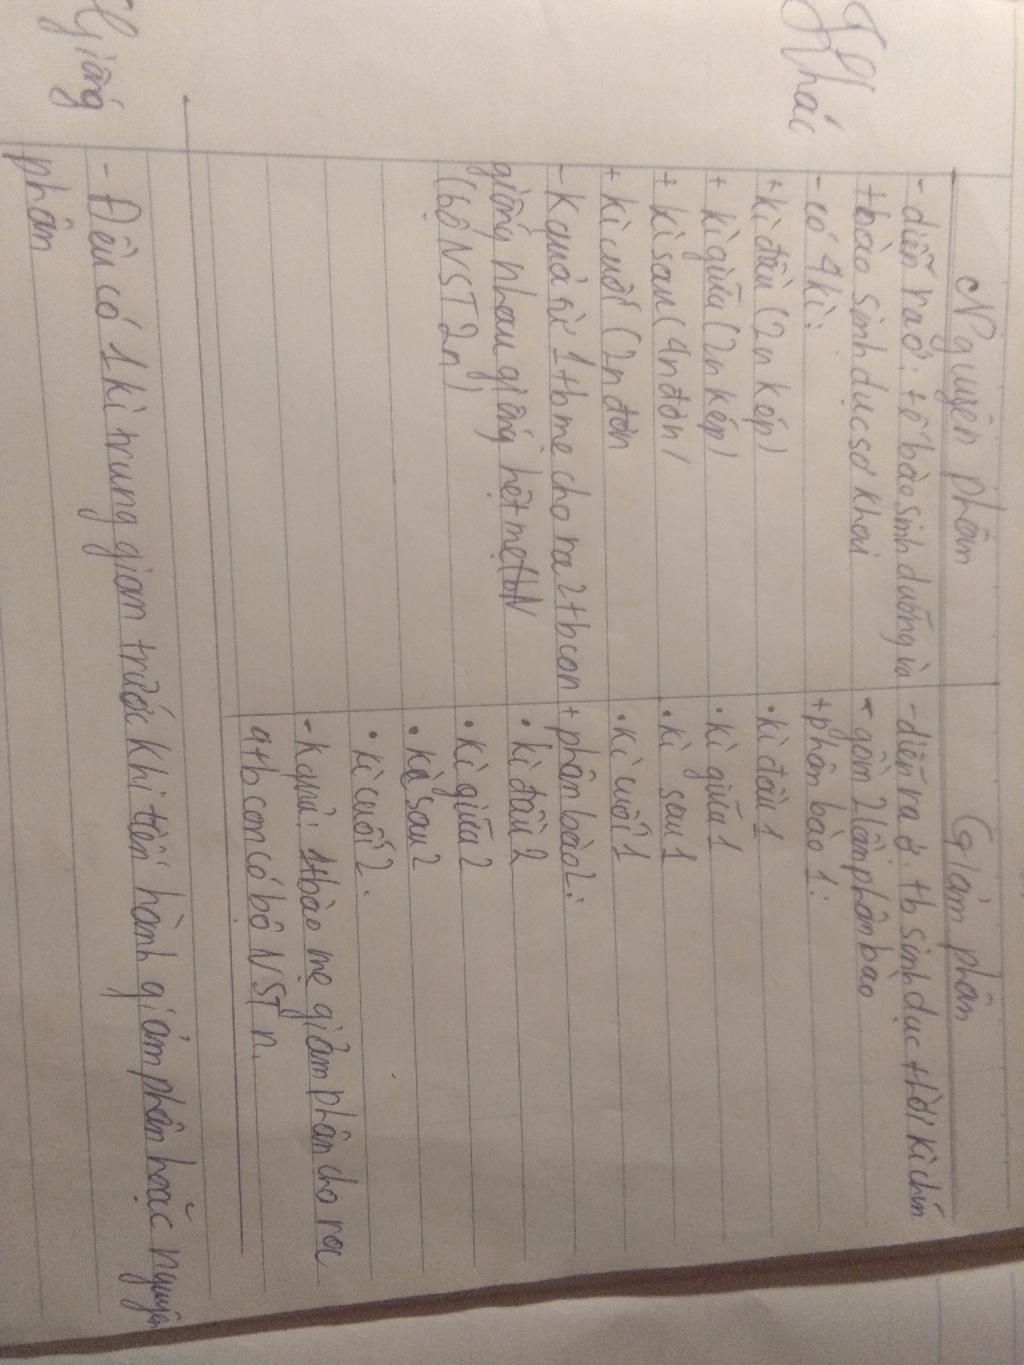 Nguyên phân
Giảm phân
Khác
- diễn ra ở: tế bào sinh dưỡng và
tbào sinh dục sơ khai
- có 4 kì:
+ kì đầu (2n kép)
+ kì giữa (2n kép)
+ kì sau (4n đơn)
+ kì cuối (2n đơn
- Kquả từ 1 tb mẹ cho ra 2 tb con
giống nhau giống hệt mẹ
(bộ NST 2n)
- diễn ra ở: tb sinh dục thời kì chín
- gồm 2 lần phân bào
+ phân bào 1:
• kì đầu 1
• kì giữa 1
• kì sau 1
• kì cuối 1
+ phân bào 2:
• kì đầu 2
• kì giữa 2
• kì sau 2
• kì cuối 2.
- kquả: 1 tbào mẹ giảm phân cho ra
4 tb con có bộ NST n.
Giống
- Đều có 1 kì trung gian trước khi tiến hành giảm phân hoặc nguyên
phân